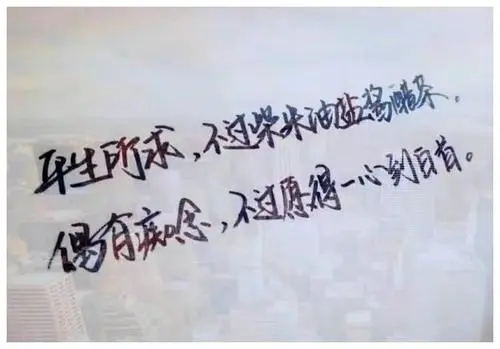 平生所求，不过柴米油盐酱醋茶。
偶有痴念，不过愿得一心到白首。